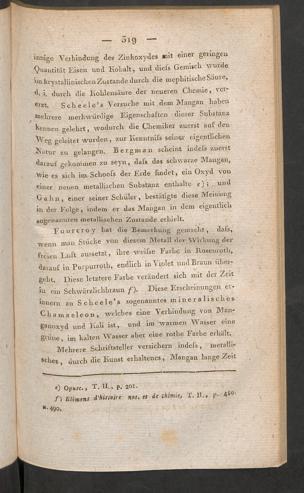 — 319 —
innige Verbindung des Zinkoxydes mit einer geringen
Quantität Eisen und Kobalt, und dieſs Gemisch wurde
im krystallinischen Zustande durch die mephitische Säure,
d. i. durch die Kohlensäure der neueren Chemie, ver-
erzt. Scheele's Versuche mit dem Mangan haben
mehrere merkwürdige Eigenschaften dieser Substanz
kennen gelehrt, wodurch die Chemiker zuerst auf den
Weg geleitet wurden, zur Kenntniſs seiner eigentlichen
Natur zu gelangen. Bergman scheint indeſs zuerst
darauf gekommen zu seyn, daſs das schwarze Mangan,
wie es sich im Schooſs der Erde findet, ein Oxyd von
einer neuen metallischen Substanz enthalte e); und
Gahn, einer seiner Schüler, bestätigte diese Meinung
in der Folge, indem er das Mangan in dem eigentlich
sogenannten metallischen Zustande erhielt.
Fourcroy hat die Bemerkung gemacht, daſs,
wenn man Stücke von diesem Metall der Wirkung der
freien Luft aussetzt, ihre weiſse Farbe in Rosenroth,
darauf in Purpurroth, endlich in Violet und Braun über-
geht. Diese letztere Farbe verändert sich mit der Zeit
in ein Schwärzlichbraun f). Diese Erscheinungen er-
innern an Scheele's sogenanntes mineralisches
Chamaeleon, welches eine Verbindung von Man-
ganoxyd und Kali ist, und im warmen Wasser eine
grüne, im kalten Wasser aber eine rothe Farbe erhält.
Mehrere Schriftsteller versichern indeſs, metalli-
sches, durch die Kunst erhaltenes, Mangan lange Zeit
e) Opusc., T. II., p. 201.
f) Elémens d'histoire nat. et de chimie, T. II., p.
u. 490.